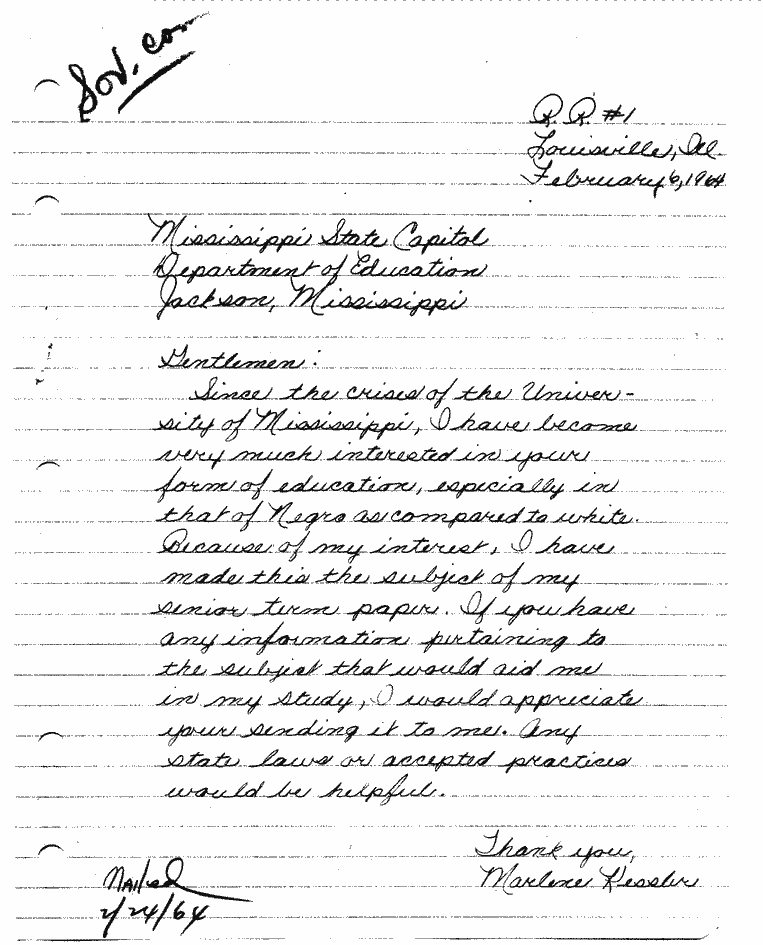 Sov. Com
R. R. #1
Louisville, Ill.
February 6, 1964
Mississippi State Capitol
Department of Education
Jackson, Mississippi
Gentlemen:
Since the crises of the Univer-
sity of Mississippi, I have become
very much interested in your
form of education, especially in
that of Negro as compared to white.
Because of my interest, I have
made this the subject of my
senior term paper. If you have
any information pertaining to
the subject that would aid me
in my study, I would appreciate
your sending it to me. Any
state laws or accepted practices
would be helpful.
Thank you,
Marlene Kessler
Mailed
2/24/64